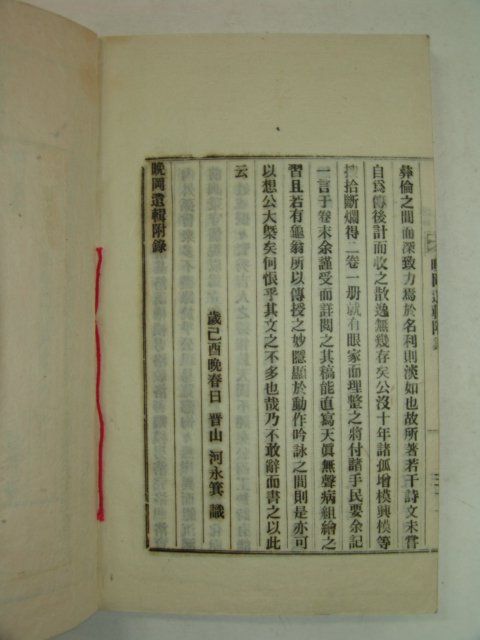 彛倫之間而深致力焉於名利則淡如也故所著若干詩文未嘗
自爲傳後計而收之散逸無幾存矣公沒十年諸孤增模興模等
拾斷爛得二卷一册就有眼家而理整之將付諸手民要余記
一言于卷末余謹受而詳閱之其稿能直寫天眞無聲病組繪之
習且若有龜翁所以傳授之妙隱顯於動作吟詠之間則是亦可
以想公大槩矣何恨乎其文之不多也哉乃不敢辭而書之以此
云
歲己酉晩春日 晋山 河永箕 識
晩岡遺輯附錄
晩岡遺輯附錄